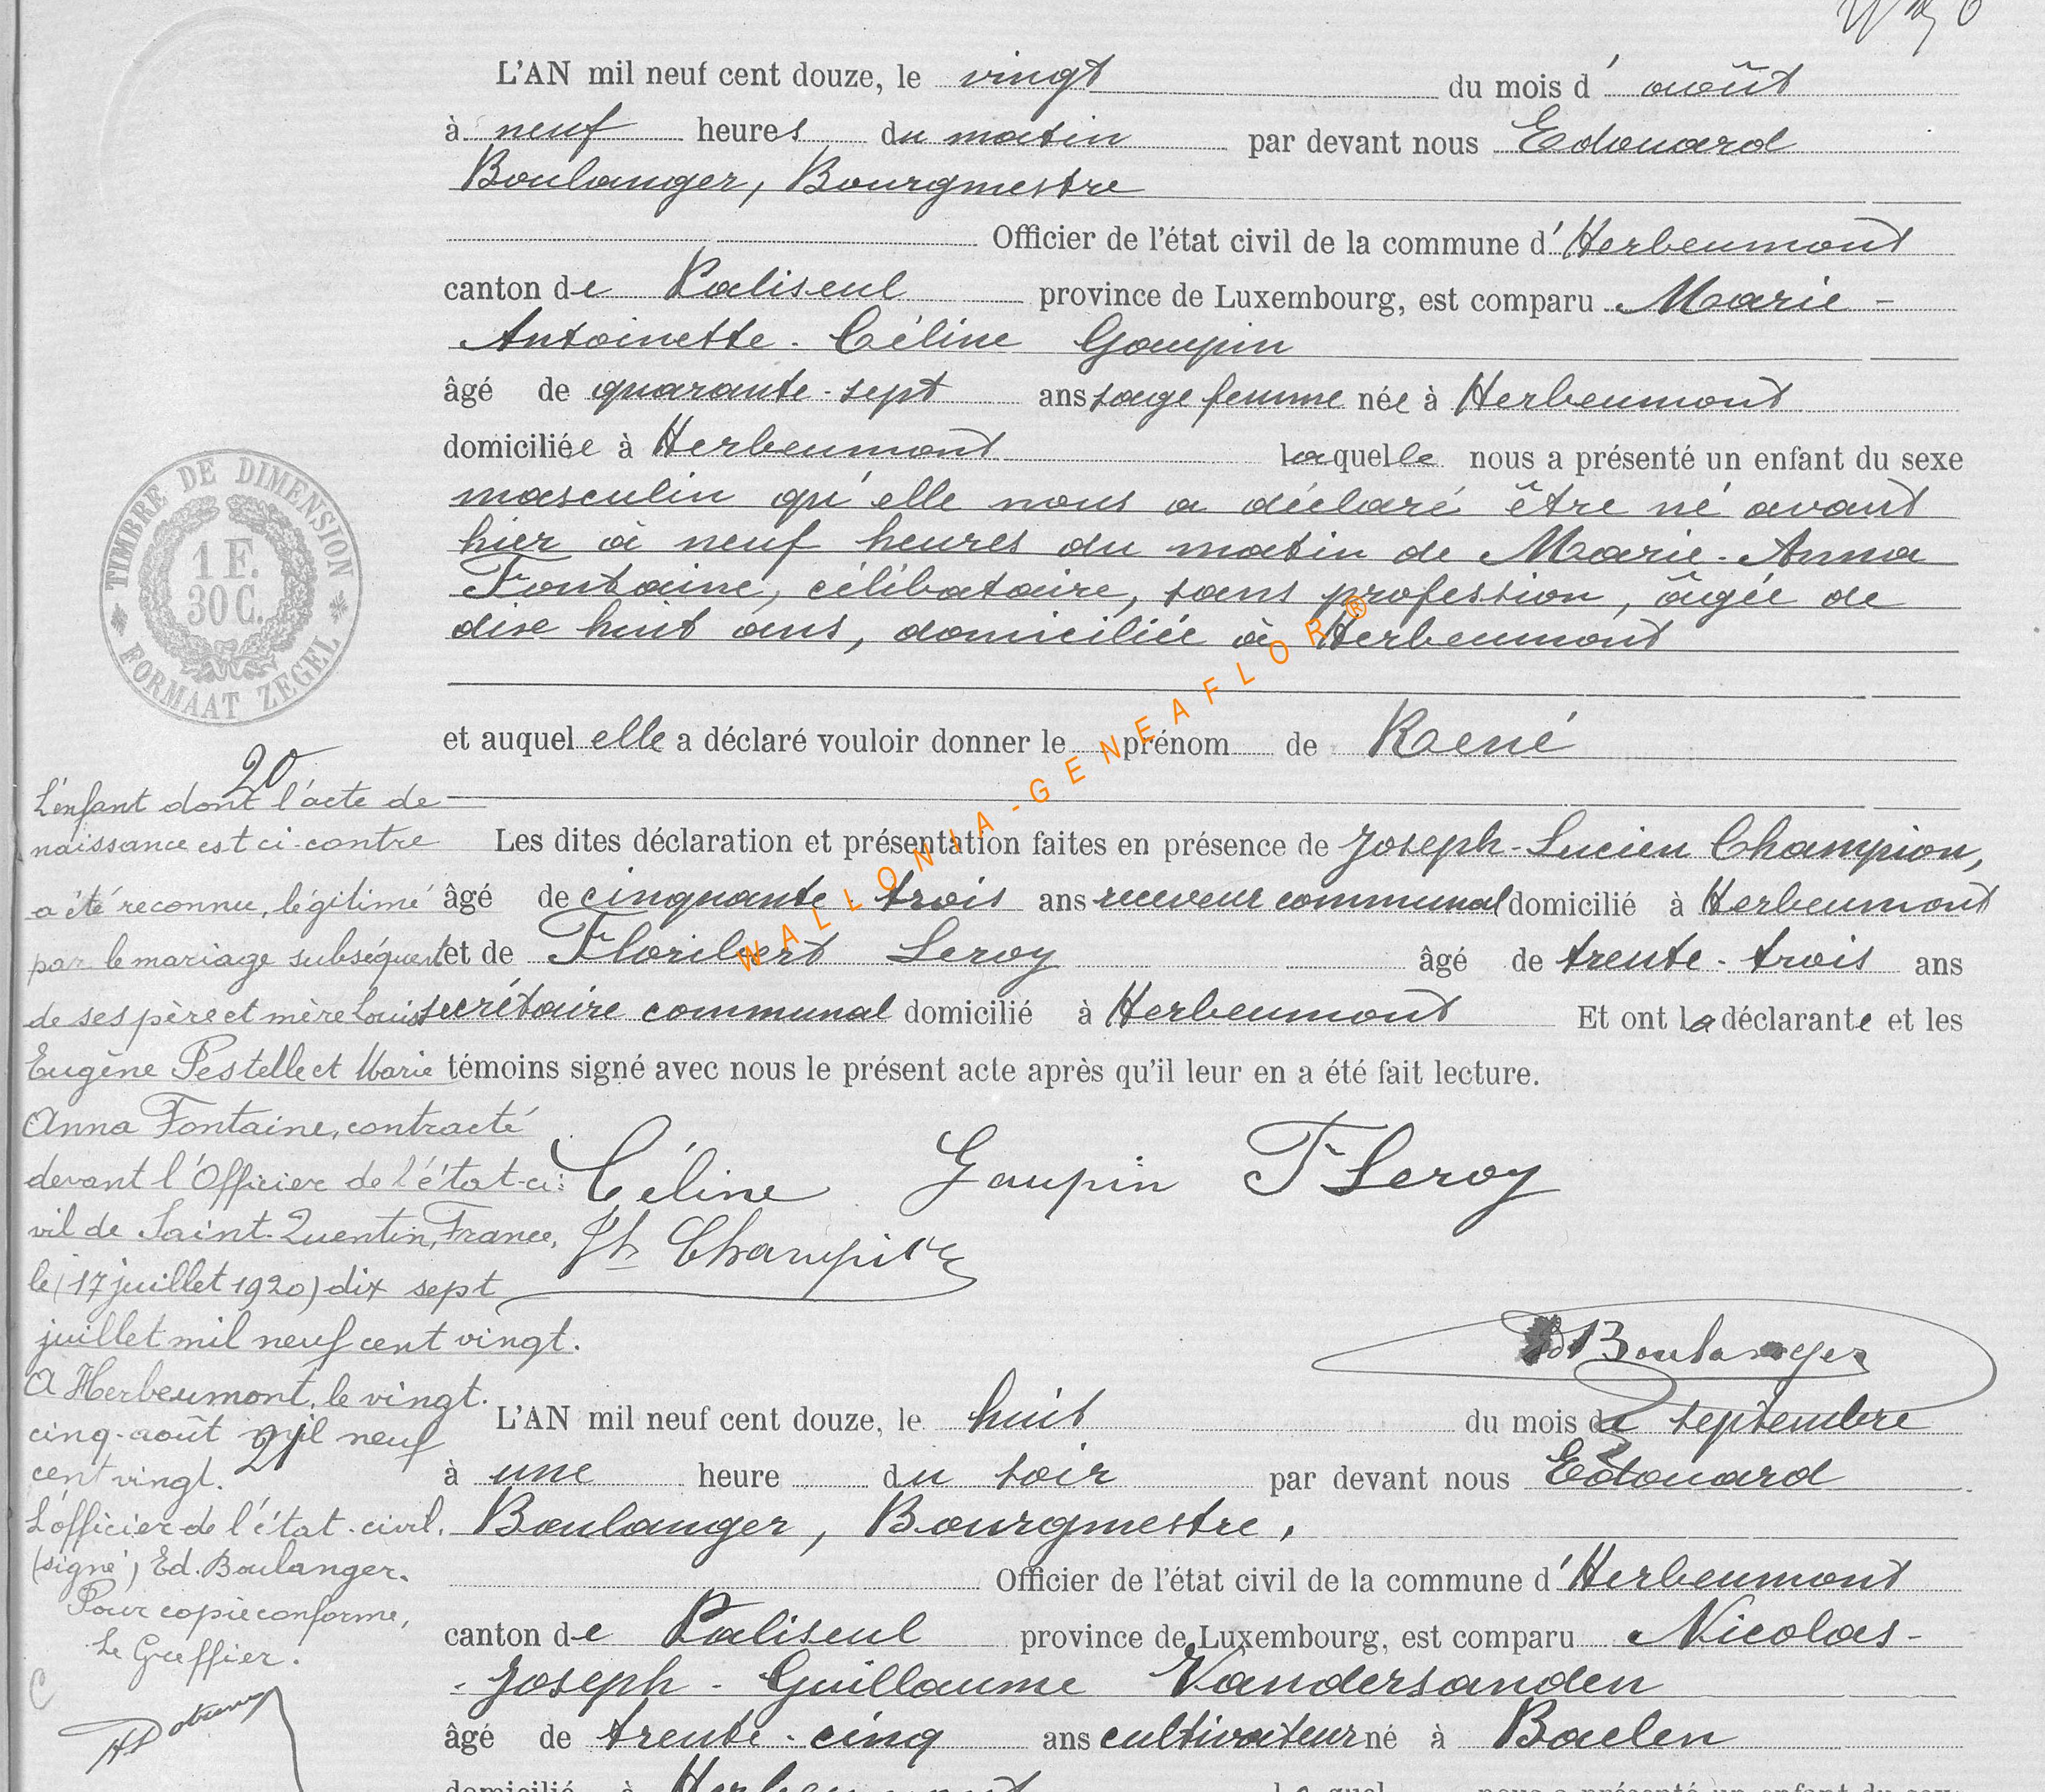 L'AN mil neuf cent douze, le vingt du mois d' août
à neuf heures du matin par devant nous Edouard
Boulanger, Bourgmestre
Officier de l'état civil de la commune d'Herbeumont
canton de Paliseul province de Luxembourg, est comparu Marie-
Antoinette-Céline Goupin
âgé de quarante-sept ans sage femme née à Herbeumont
domiciliée à Herbeumont laquelle nous a présenté un enfant du sexe
masculin qu'elle nous a déclaré être né avant
hier à neuf heures du matin de Marie-Anna
Fontaine, célibataire, sans profession, âgée de
dix huit ans, domiciliée à Herbeumont
et auquel elle a déclaré vouloir donner le prénom de René
Les dites déclaration et présentation faites en présence de Joseph-Lucien Champion,
âgé de cinquante trois ans receveur communal domicilié à Herbeumont
et de Floribert Leroy âgé de trente-trois ans
secrétaire communal domicilié à Herbeumont Et ont la déclarante et les
témoins signé avec nous le présent acte après qu'il leur en a été fait lecture.
Céline Goupin F Leroy
Jh Champion
Ed Boulanger
TIMBRE DE DIMENSION
1 F.
30 C.
FORMAAT ZEGEL
20
L'enfant dont l'acte de
naissance est ci-contre
a été reconnu, légitimé
par le mariage subséquent
de ses père et mère Louis
Eugène Pestelle et Marie
Anna Fontaine, contracté
devant l'Officier de l'état-ci:
vil de Saint-Quentin, France,
le (17 juillet 1920) dix sept
juillet mil neuf cent vingt.
A Herbeumont, le vingt-
cinq-août mil neuf
cent vingt.
L'officier de l'état-civil.
(signé) Ed. Boulanger.
Pour copie conforme,
Le Greffier.
WALLONIA-GENEAFLOR®
21
L'AN mil neuf cent douze, le huit du mois de septembre
à une heure du soir par devant nous Edouard
Boulanger, Bourgmestre,
Officier de l'état civil de la commune d'Herbeumont
canton de Paliseul province de Luxembourg, est comparu Nicolas-
-Joseph-Guillaume Vandersanden
âgé de trente-cinq ans cultivateur né à Baelen
domicilié à Herbeumont lequel nous a présenté un enfant du sexe